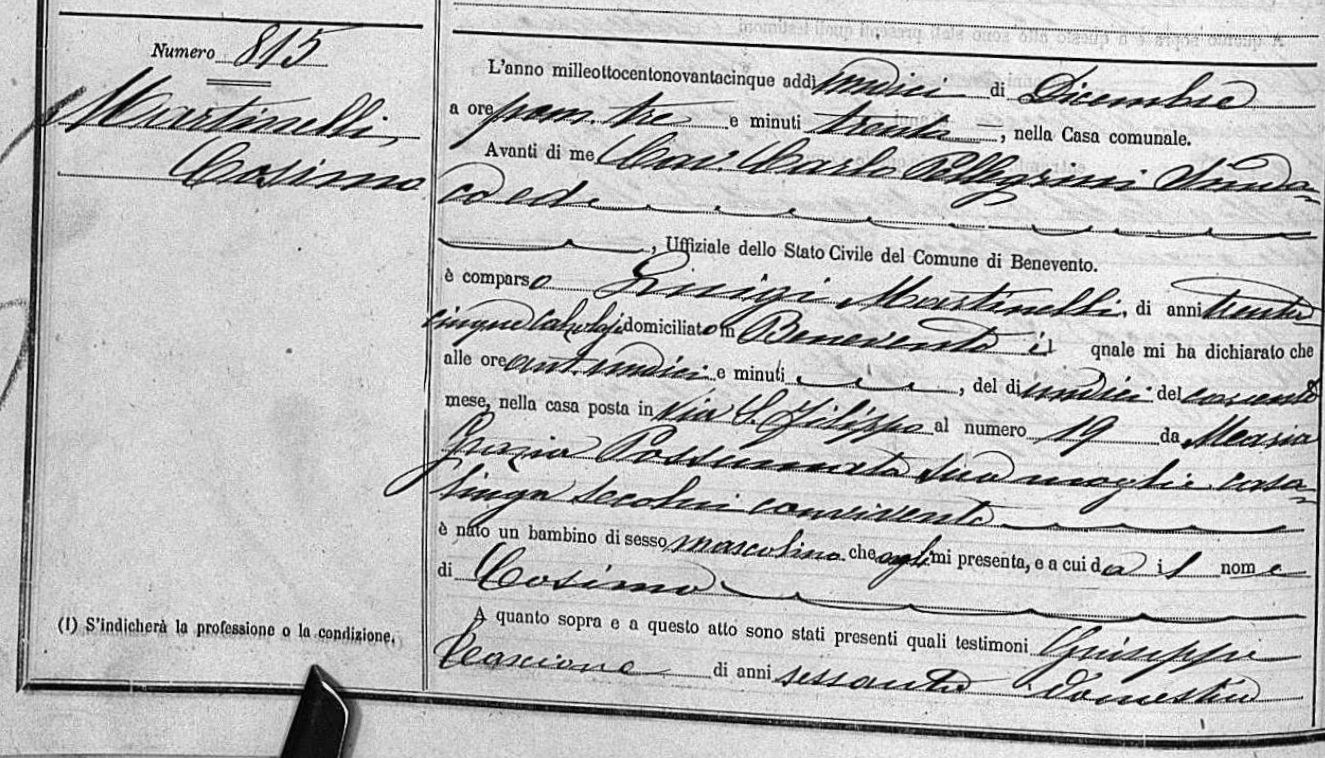 Numero 815
Martinelli
Cosimo
(1) S'indicherà la professione o la condizione.
L'anno milleottocentonovantacinque addì undici di Dicembre
a ore pom. tre e minuti trenta, nella Casa comunale.
Avanti di me Cav. Carlo Pellegrini Sinda-
co ed
, Uffiziale dello Stato Civile del Comune di Benevento.
è comparso Luigi Martinelli, di anni trenta
cinque domiciliato in Benevento il quale mi ha dichiarato che
alle ore ant. undici e minuti , del dì undici del corrente
mese, nella casa posta in via S. Filippo al numero 19 da Maria
Grazia Possumata sua moglie casa-
linga secolui convivente
è nato un bambino di sesso mascolino che egli mi presenta, e a cui dà il nome
di Cosimo
A quanto sopra e a questo atto sono stati presenti quali testimoni Giuseppe
di anni sessanta domestico